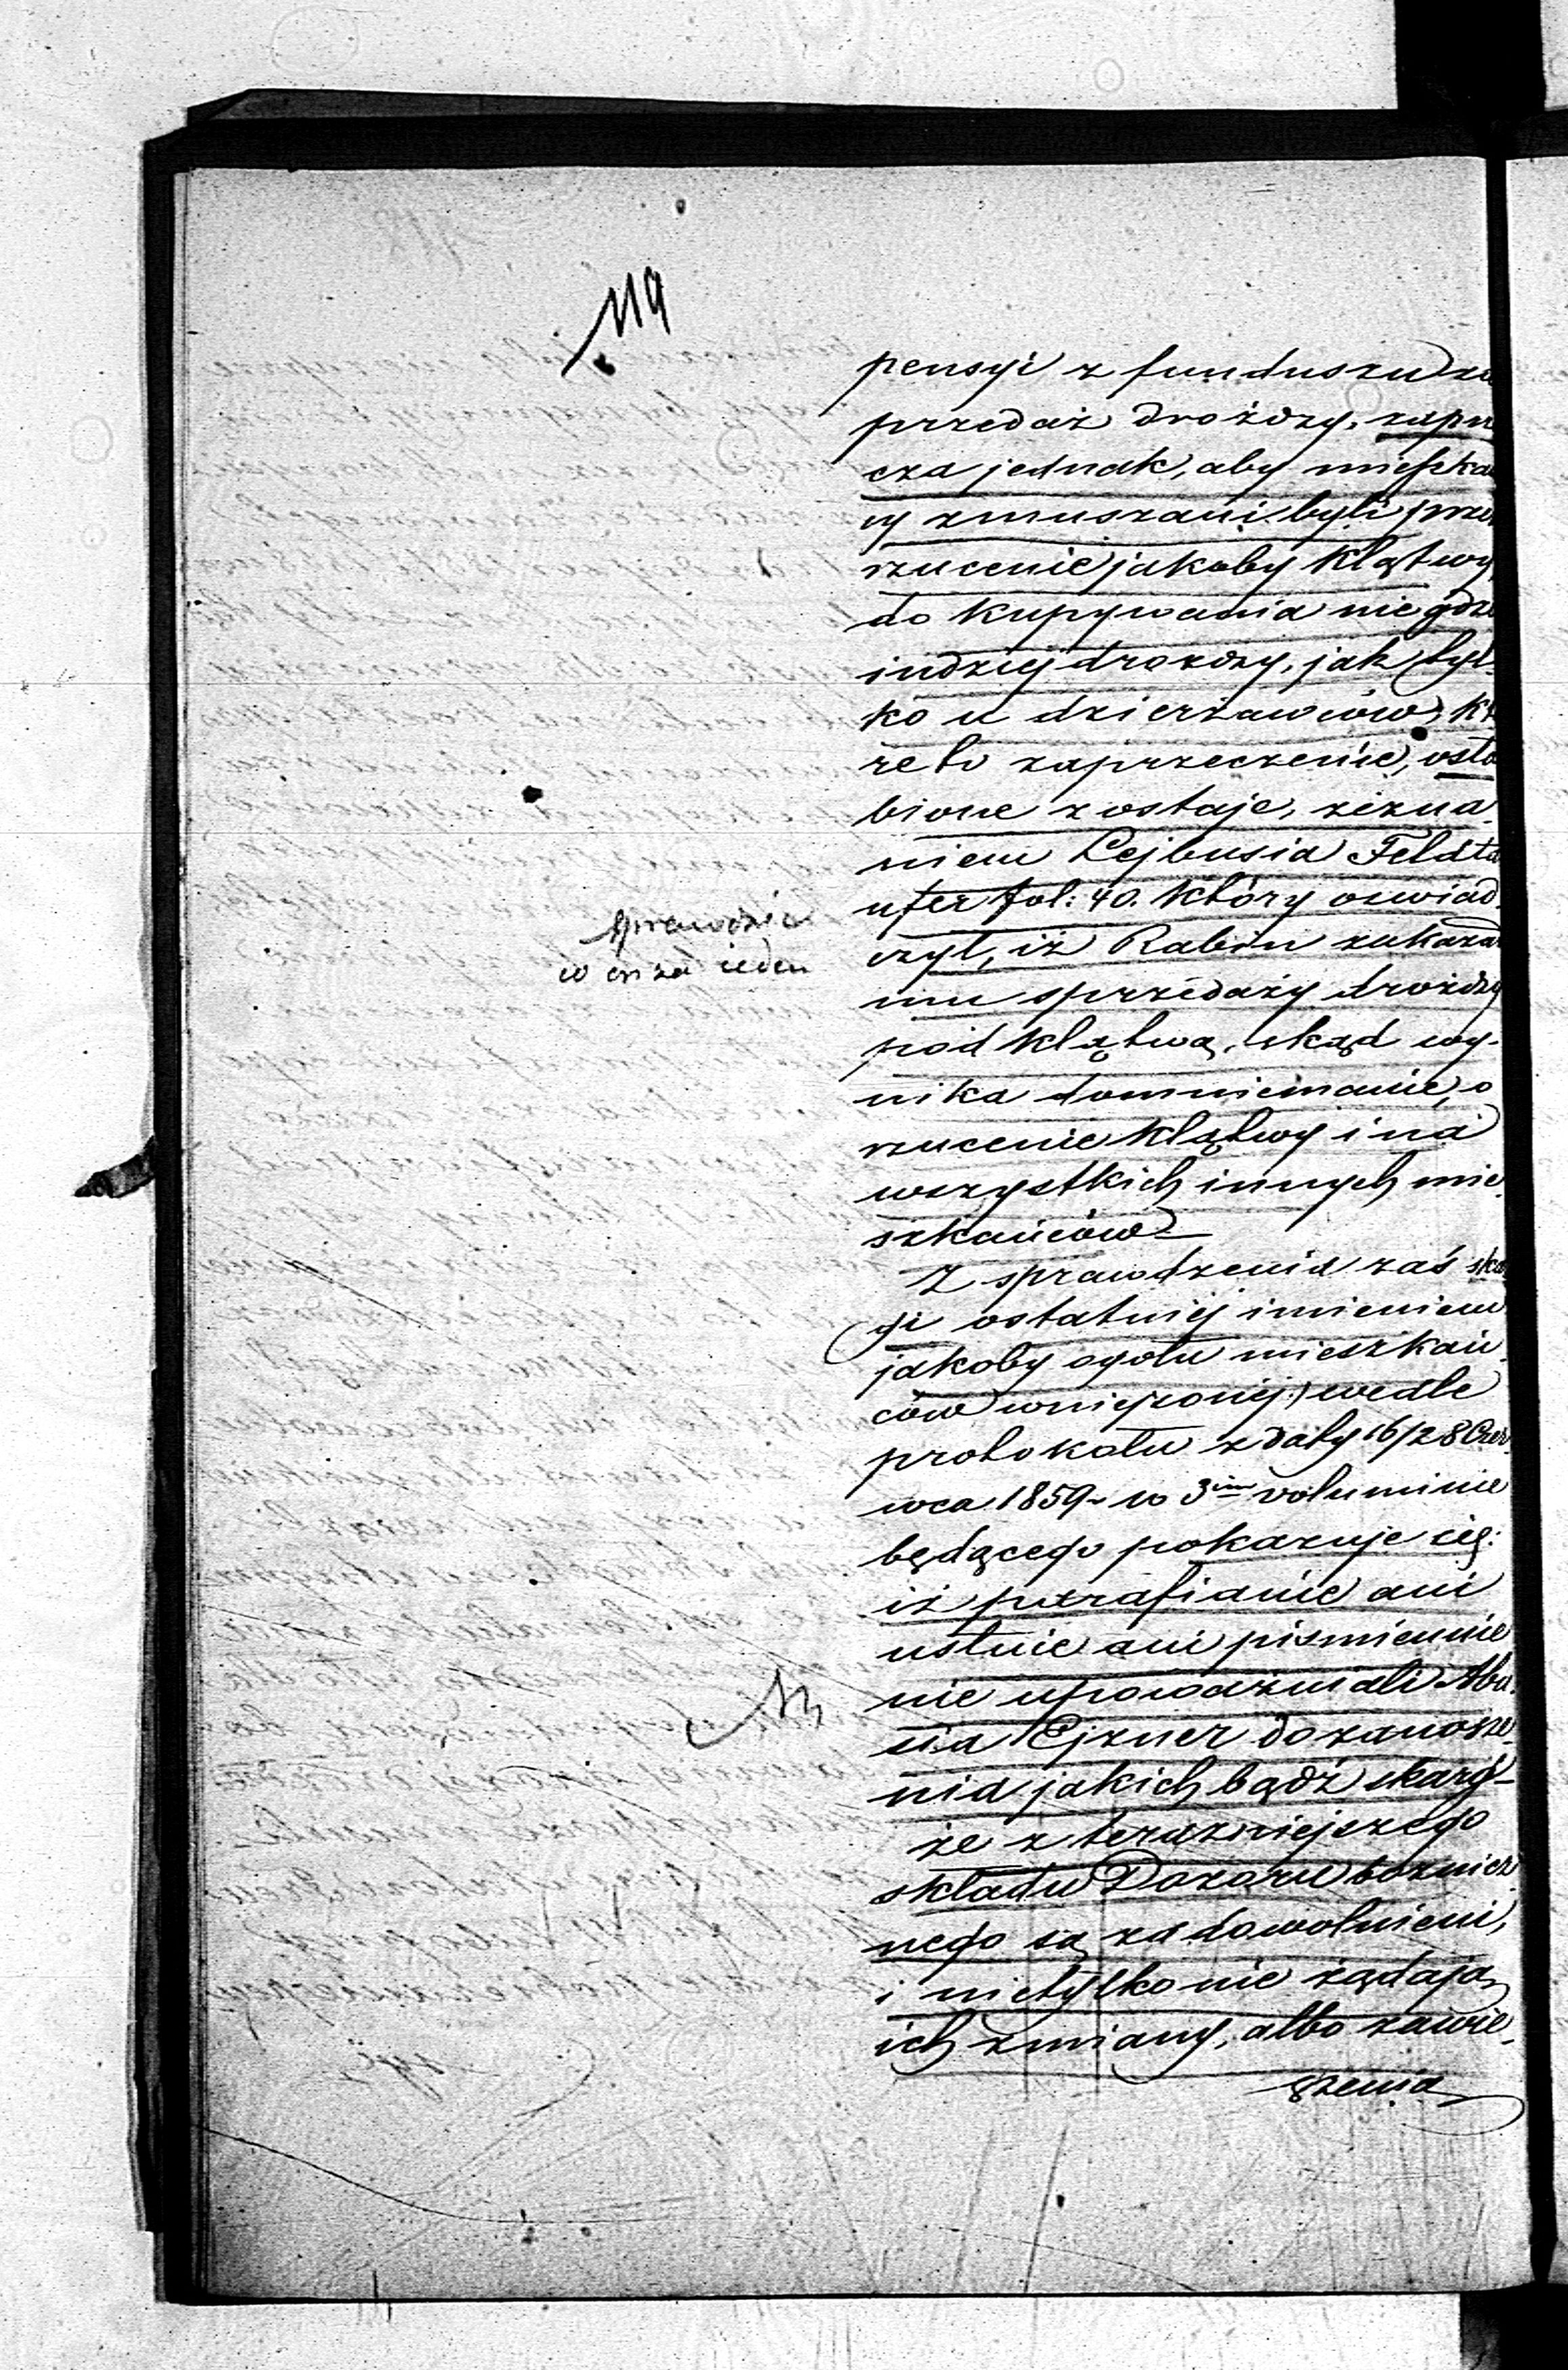 119
pensyi z funduszu za
przedaż drożdży, zaprze
cza jednak, aby mieszkań
cy zmuszani byli przez
rzucenie jakoby klątwy
do kupywania nie gdzie
indziej drożdży, jak tyl-
ko u dzierżawców, któ
re to zaprzeczenie, osła
bione zostaje, zezna-
niem Lejbusia Feldta
uter fol: 40. który oswiad-
czył, iż Rabin zakazał
mu sprzedaży drożdży
pod klątwą, skąd wy-
nika domniemanie, o
rzucenie klątwy i na
wszystkich innych mie-
szkańców
Z sprawdzenia zaś skar
gi ostatniej imieniem
jakoby ogołu mieszkań-
ców wniesionej, wedle
protokołu z daty 16/28 Czer
wca 1859 w 3im voluminie
będącego pokazuje się:
iż parafianie ani
ustnie ani pismiennie
nie upoważniali Abra
ma Ejzner do zanosze-
nia jakich bądź skarg-
że z teraźniejszego
składu Dozoru bożnicz
nego są zadowolnieni,
i nietylko nie żądają
ich zmiany, albo zawie-
szenia